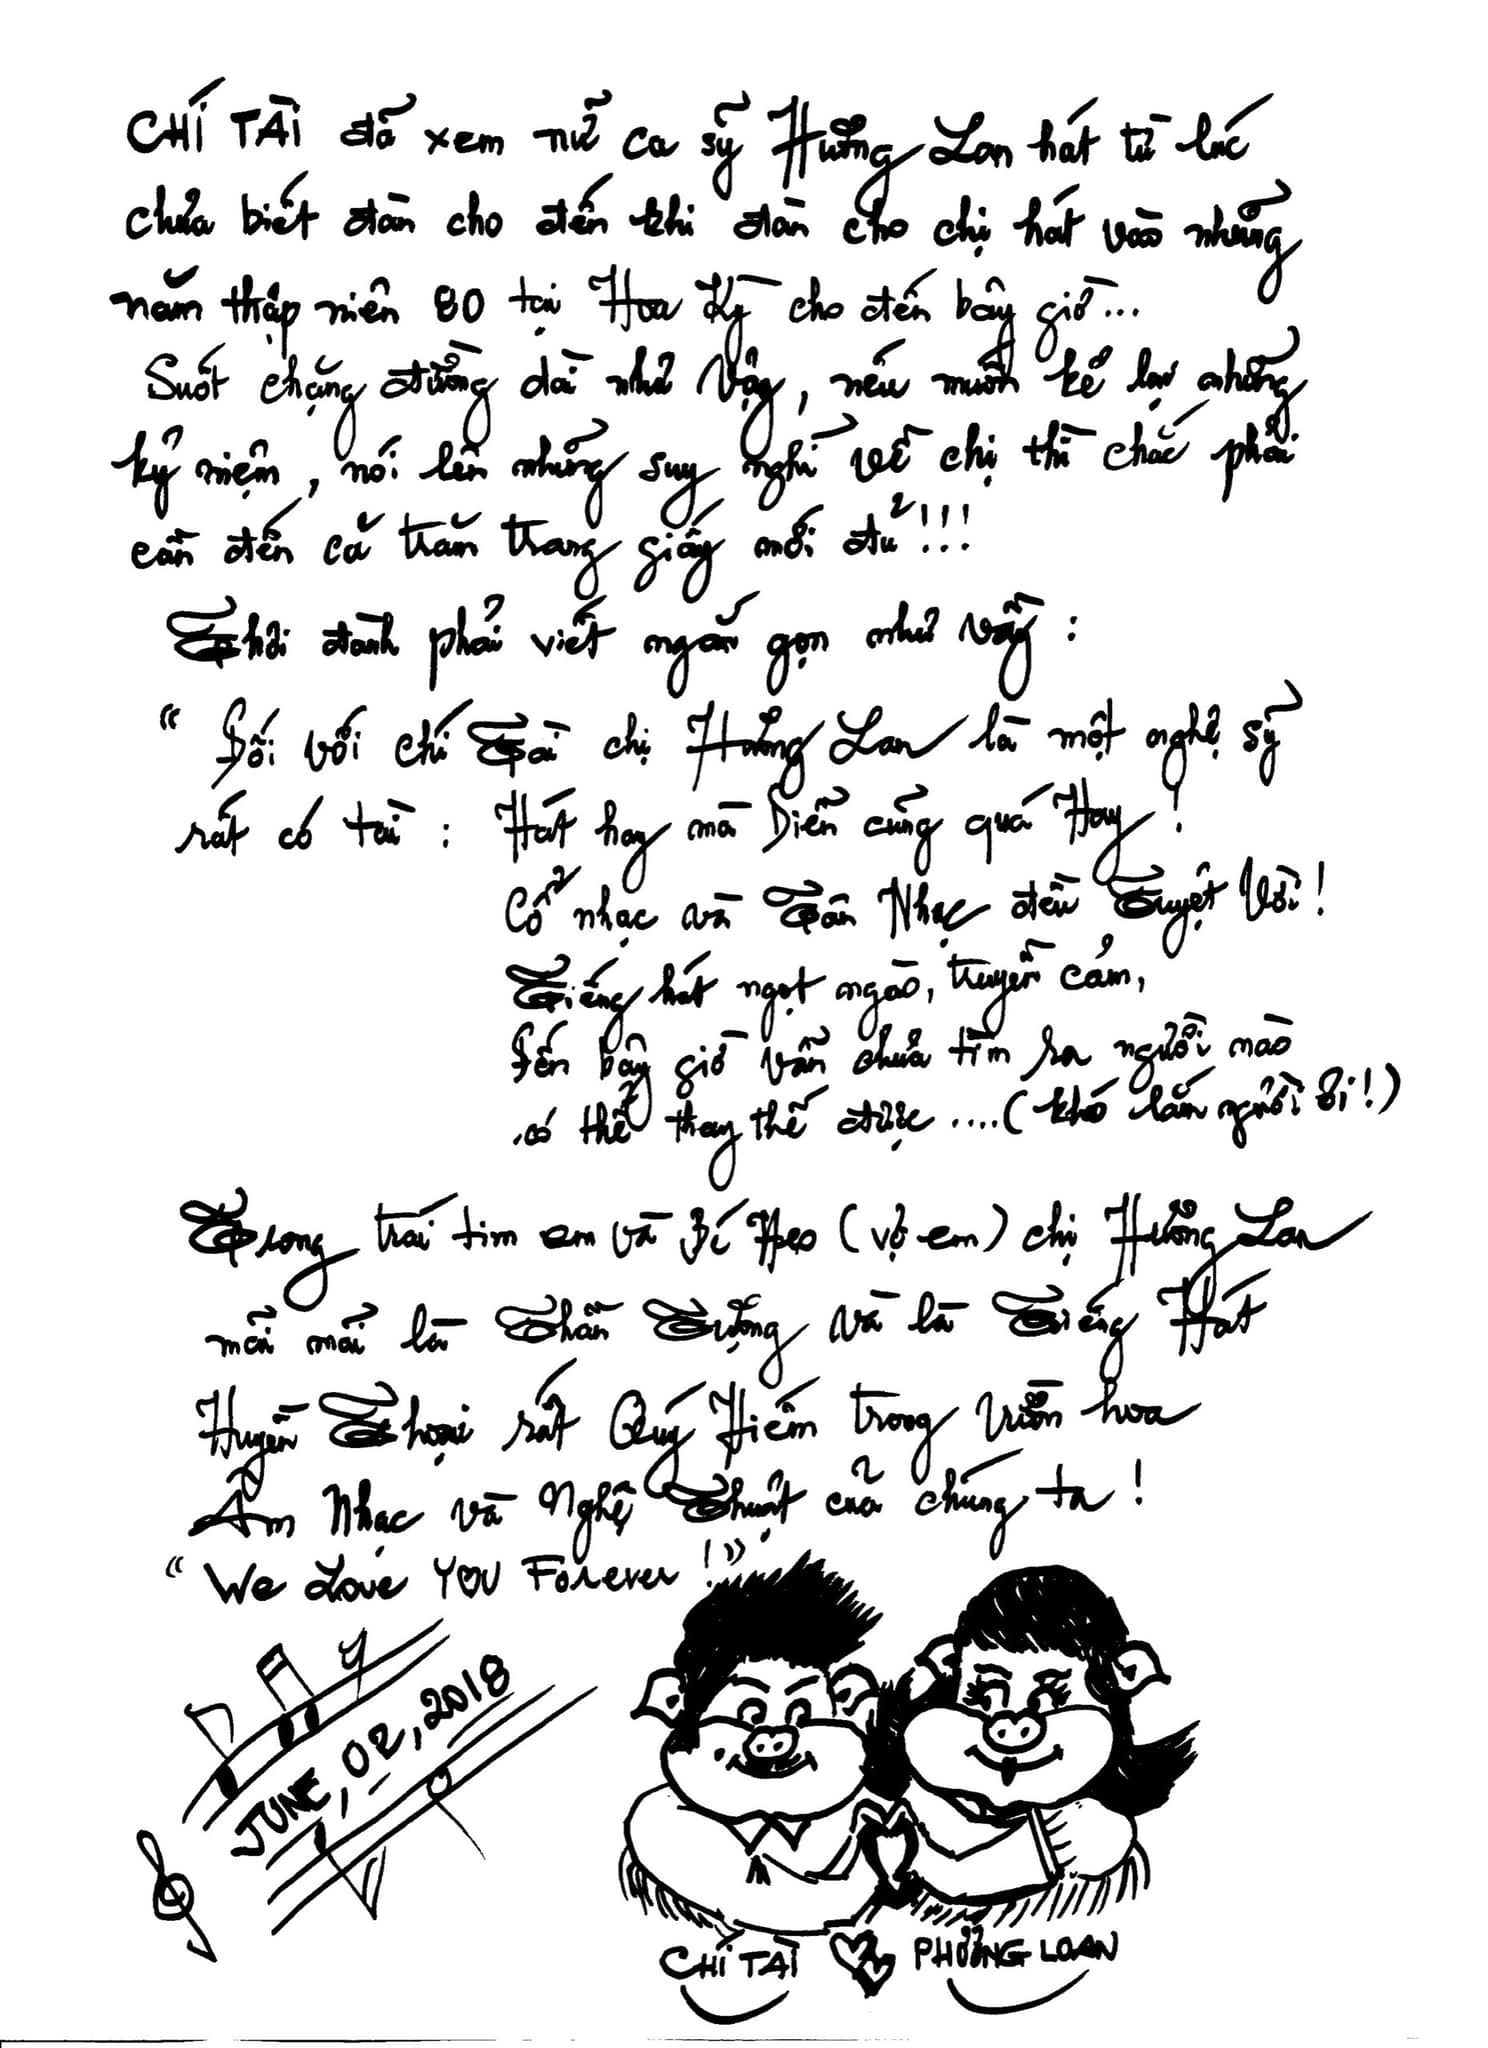 CHÍ TÀI đã xem nữ ca sỹ Hương Lan hát từ lúc
chưa biết đàn cho đến khi đàn cho chị hát vào những
năm thập niên 80 tại Hoa Kỳ cho đến bây giờ...
Suốt chặng đường dài như vậy, nếu muốn kể lại những
kỷ niệm, nói lên những suy nghĩ về chị thì chắc phải
cần đến cả trăm trang giấy mới đủ!!!
Thôi đành phải viết ngắn gọn như vầy :
" Đối với chí Tài chị Hương Lan là một nghệ sỹ
rất có tài : Hát hay mà Diễn cũng quá Hay!
Cổ nhạc và Tân Nhạc đều Tuyệt Vời!
Tiếng hát ngọt ngào, truyền cảm,
Đến bây giờ vẫn chưa tìm ra người nào
có thể thay thế được ....( khó lắm người ơi!)
Trong trái tim em và Bé Heo (vợ em) chị Hương Lan
mãi mãi là Thần Tượng và là Tiếng Hát
Huyền Thoại rất Quý Hiếm trong Vườn hoa
Âm Nhạc và Nghệ Thuật của chúng ta !
" We Love YOU Forever !"
JUNE, 02, 2018
CHÍ TÀI PHƯƠNG LOAN